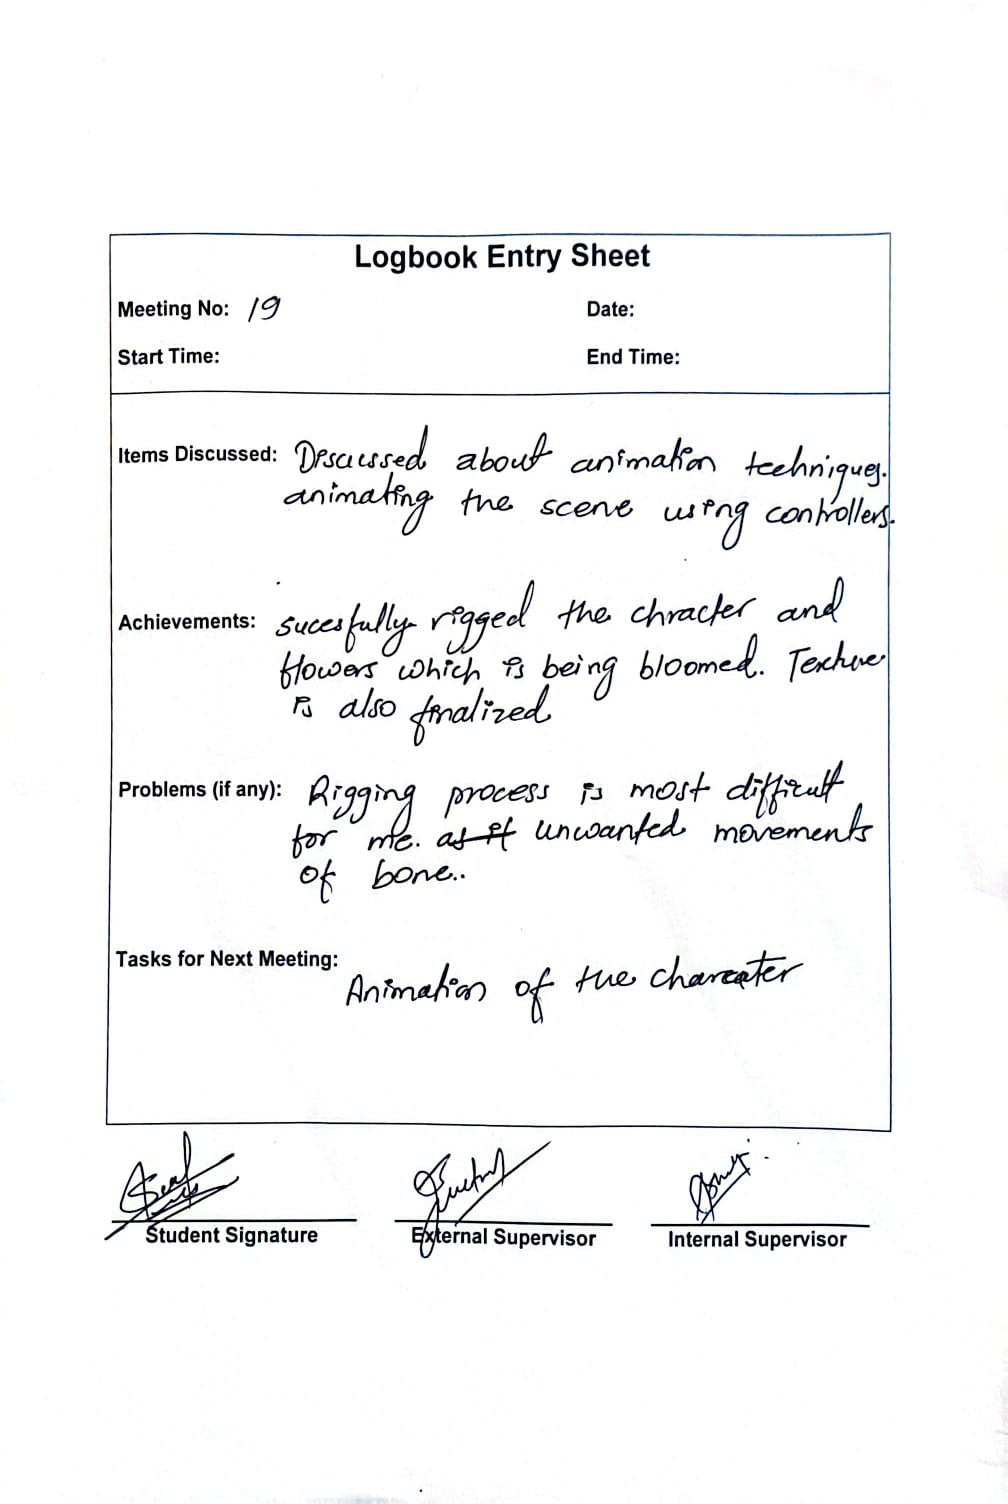 Logbook Entry Sheet
Meeting No: 19 Date:
Start Time: End Time:
Items Discussed: Discussed about animation techniques.
animating the scene using controllers.
Achievements: sucesfully rigged the chracter and
flowers which is being bloomed. Texture
is also finalized
Problems (if any): Rigging process is most difficult
for me. as it unwanted movements
of bone..
Tasks for Next Meeting:
Animation of the charcater
Student Signature External Supervisor Internal Supervisor